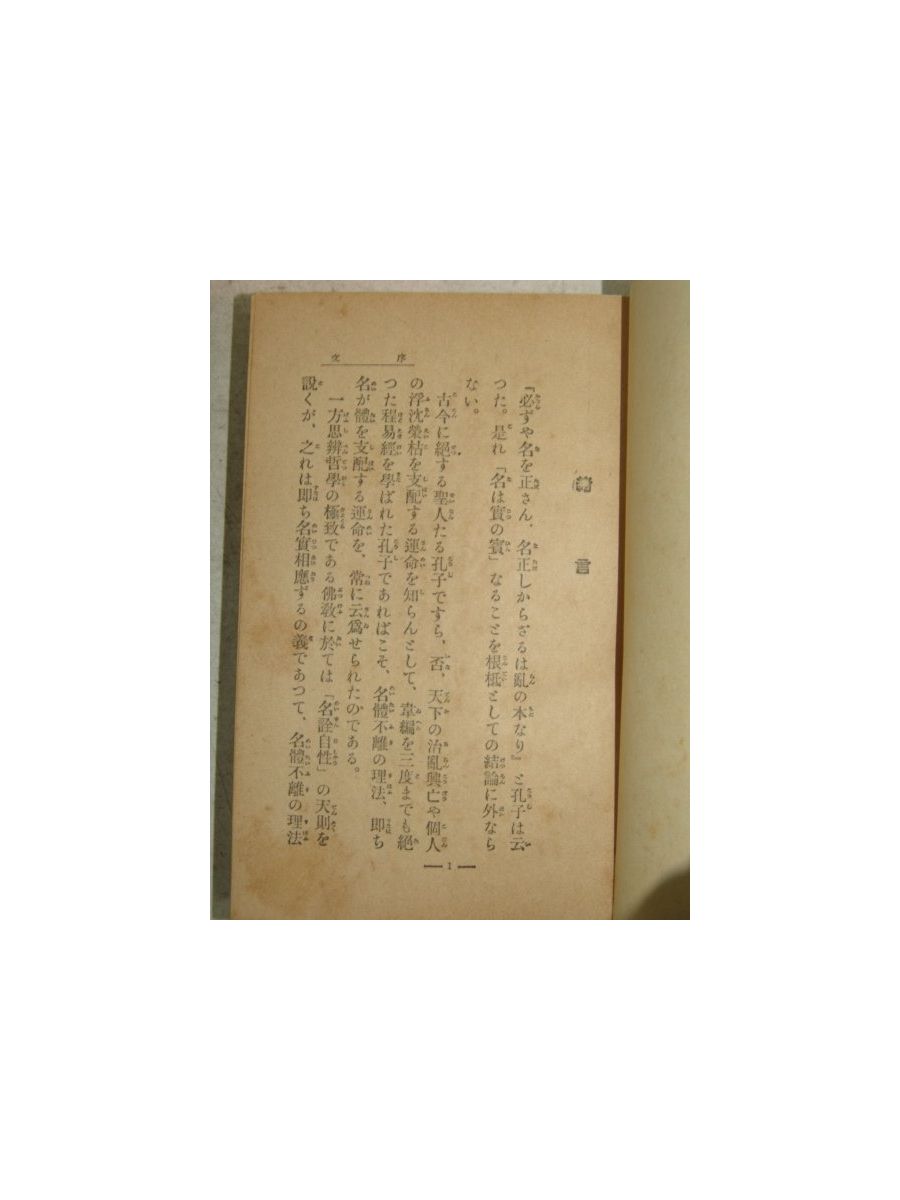 序文
緒言
『必ずや名を正さん、名正しからざるは亂の本なり』と孔子は云
つた。是れ「名は實の賓」なることを根柢としての結論に外なら
ない。
古今に絕する聖人たる孔子ですら、否、天下の治亂興亡や個人
の浮沈榮枯を支配する運命を知らんとして、韋編を三度までも絕
つた程易經を學ばれた孔子であればこそ、名體不離の理法、即ち
名が體を支配する運命を、常に云爲せられたのである。
一方思辨哲學の極致である佛敎に於ては「名詮自性」の天則を
說くが、之れは即ち名實相應ずるの義であつて、名體不離の理法
— 1 —